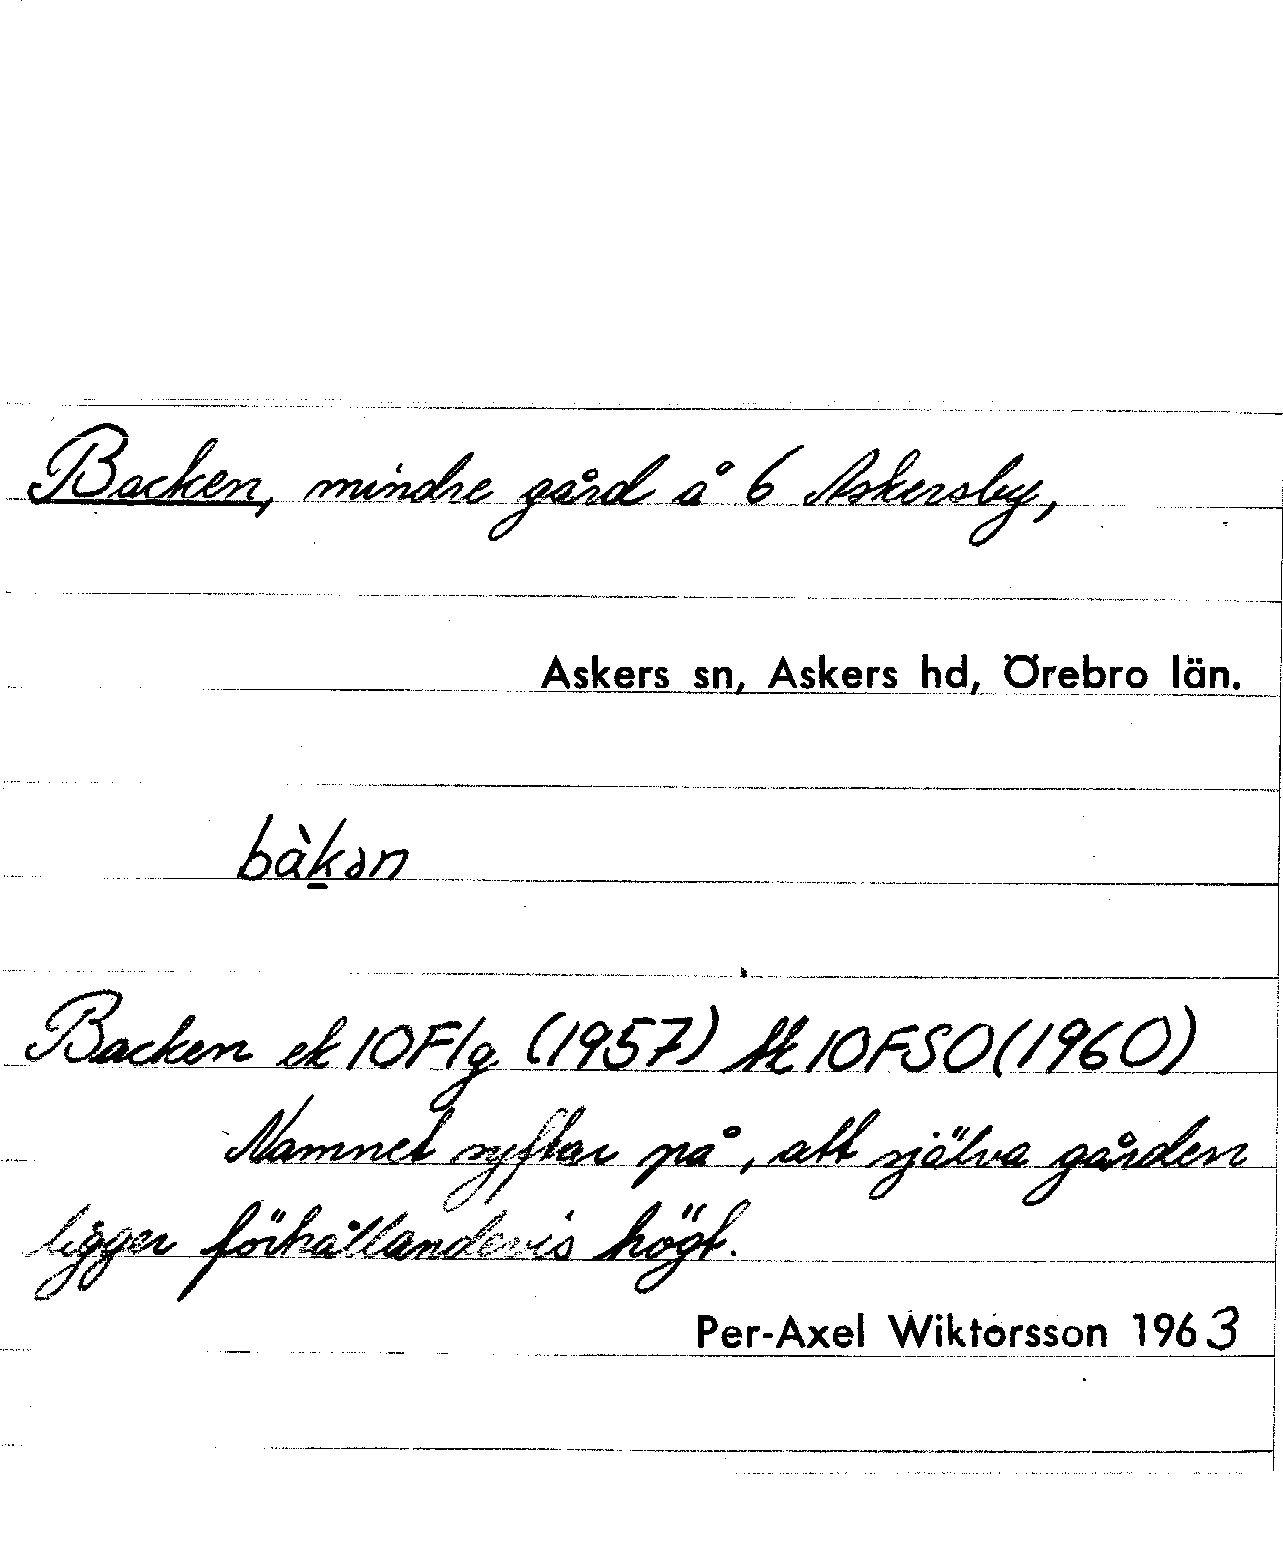 Backen, mindre gård å 6 Askersby,
Askers sn, Askers hd, Örebro län.
bàk̲ən
Backen ek 10F1g (1957) tk 10FSO (1960)
Namnet syftar på, att själva gården
ligger förhållandevis högt.
Per-Axel Wiktorsson 1963